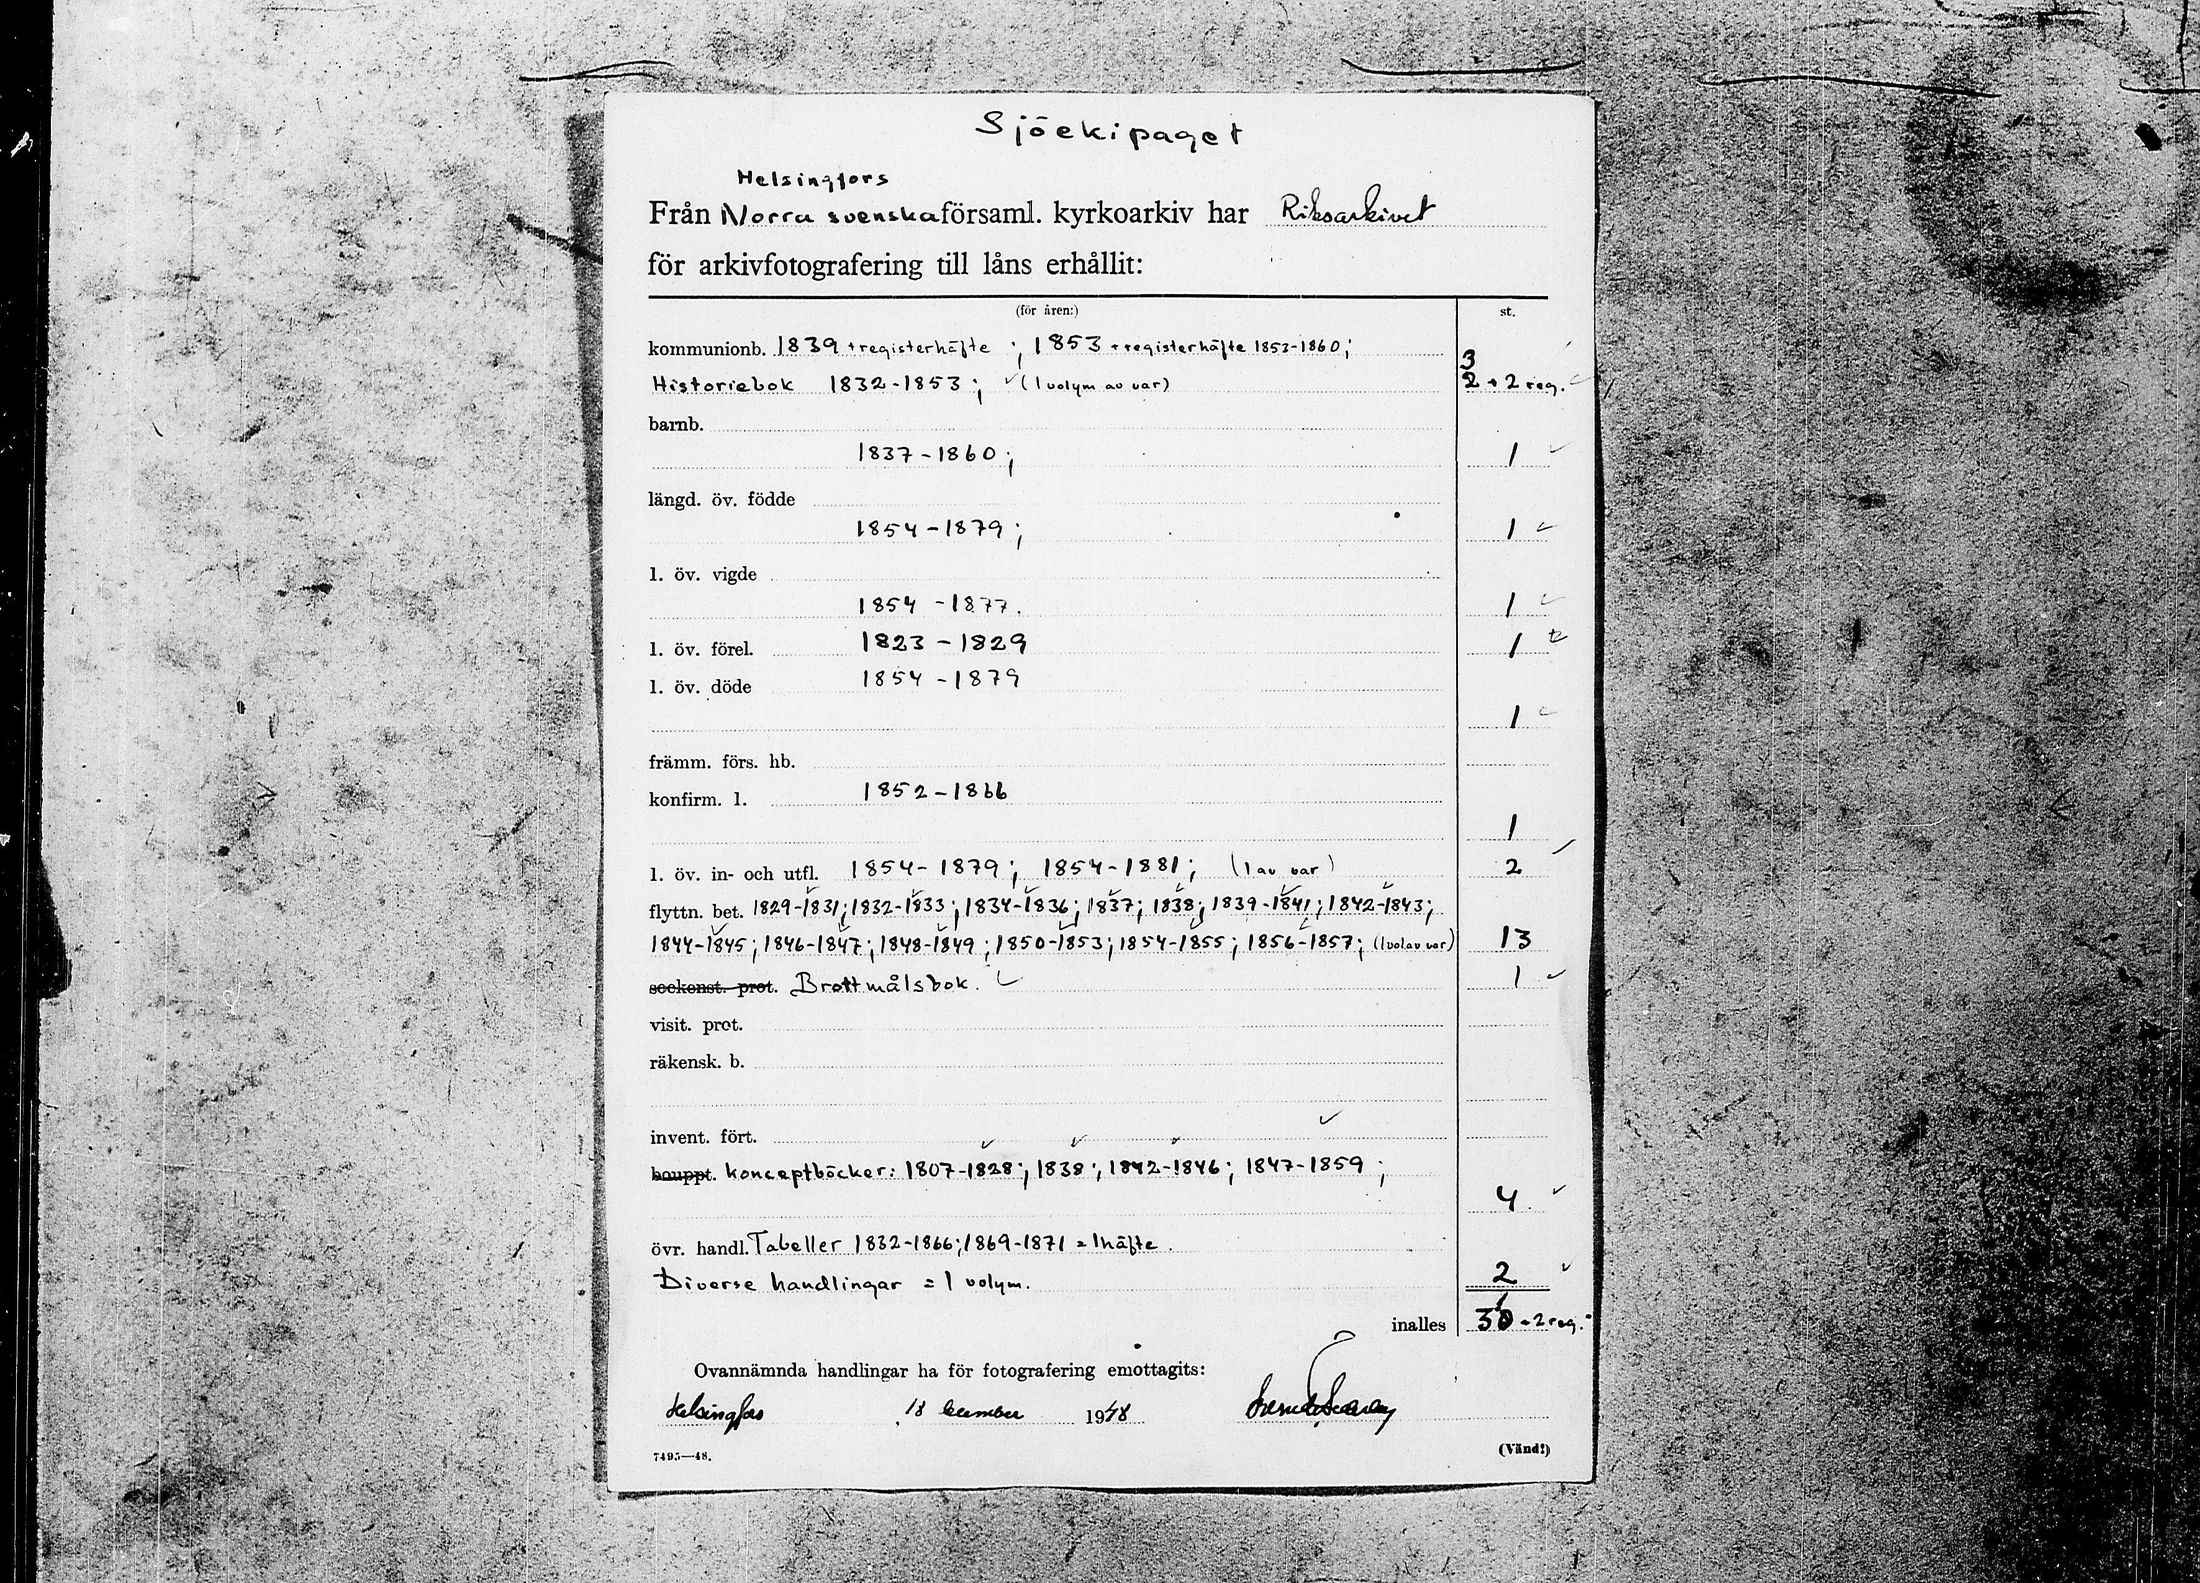 Sjöekipaget
Helsingfors
Från Norra svenska församl. kyrkoarkiv har Riksarkivet
för arkivfotografering till låns erhållit:
(för åren:) st.
kommunionb. 1839 + registerhäfte ; 1853 + registerhäfte 1853-1860; 3
Historiebok 1832-1853; (1 volym av var) 2 + 2 reg.
barnb.
1837-1860; 1
längd. öv. födde
1854-1879; 1
l. öv. vigde
1854-1877. 1
l. öv. förel. 1823-1829 1
l. öv. döde 1854-1879
1
främm. förs. hb.
konfirm. l. 1852-1866
1
l. öv. in- och utfl. 1854-1879; 1854-1881; (1 av var) 2
flyttn. bet. 1829-1831; 1832-1833; 1834-1836; 1837; 1838; 1839-1841; 1842-1843;
1844-1845; 1846-1847; 1848-1849; 1850-1853; 1854-1855; 1856-1857; (1 vol av var) 13
sockenst. prot. Brottmålsbok. 1
visit. prot.
räkensk. b.
invent. fört.
bouppt. konceptböcker: 1807-1828; 1838; 1842-1846; 1847-1859;
4
övr. handl. Tabeller 1832-1866; 1869-1871 = 1 häfte.
Diverse handlingar = 1 volym. 2
inalles + 2 reg.
Ovannämnda handlingar ha för fotografering emottagits:
Helsingfors 18 december 1948
7495—48. (Vänd!)